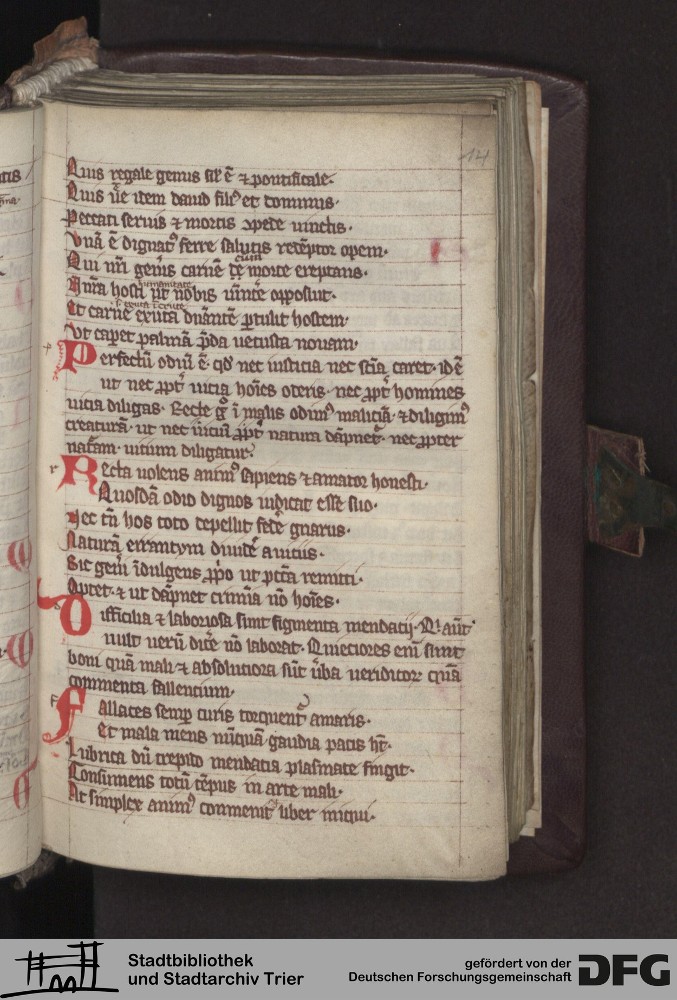 14
Quis regale genus sil' ē ⁊ pontificale·
Quis ūe item dauid filꝰ et dominus·
Peccati seruis ⁊ mortis ꝯpede uinctis·
Vnā ē dignatꝰ ferre salutis opem·
Qui nr̄i gen̄is carnē cum morte ereptans·
humanitate
Et carnē exuta ꝑtulit hostem·
Vt caperet palmā p̄da uetusta nouam·
Perfectū odiū ē· qd̓ nec iusticia nec sciā caret· id ē
ut nec ꝓpt̓ uicia hoīes oderis· nec ꝓpt̓ hommes
uicia diligas· Recte gͦ ī malis odimꝰ maliciā· ⁊ diligimꝰ
creaturā· ut nec uiciū ꝓpt̓ naturā dāpnet᷑· nec ꝓpter
nat̄am· uitium diligatur·
Recta uolens animꝰ sapiens ⁊ amator honesti·
Quosdā odio dignos iudicat esse suo·
Nec tn̄ hos toto depellit fed̓e gnarus·
Naturā errantym diuid̓e a uiciis·
Sic gen̓i īdulgens ꝓp̓o ut pc̄ta remitti·
Optet· ⁊ ut dāpnet crimīa nō hoīes·
Difficilia ⁊ laboriosa sunt figmenta mendacij· Qͥ aūt
uult uerū dic̓e nō laborat· Quieciores enī sunt
boni quā mali· ⁊ absolutiora sūt ūba ueridicoꝝ quā
commenta fallentium·
Fallaces semꝑ curis torquent᷑ amaris·
Et mala mens nūquā gaudia pacis h̄t·
Lubrica dū trepido mendacia plasmate fingit·
Consumens totū tēpus in arte mali·
At simplex animꝰ liber iniqui·
Stadtbibliothek
und Stadtarchiv Trier
gefördert von der
Deutschen Forschungsgemeinschaft
DFG